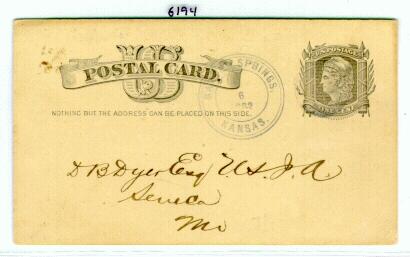 6194
U.S.
POSTAL CARD.
NOTHING BUT THE ADDRESS CAN BE PLACED ON THIS SIDE.
SPRINGS
6
KANSAS.
U.S. POSTAGE
ONE CENT
D B Dyer Esq U.S. I. A.
Seneca
Mo